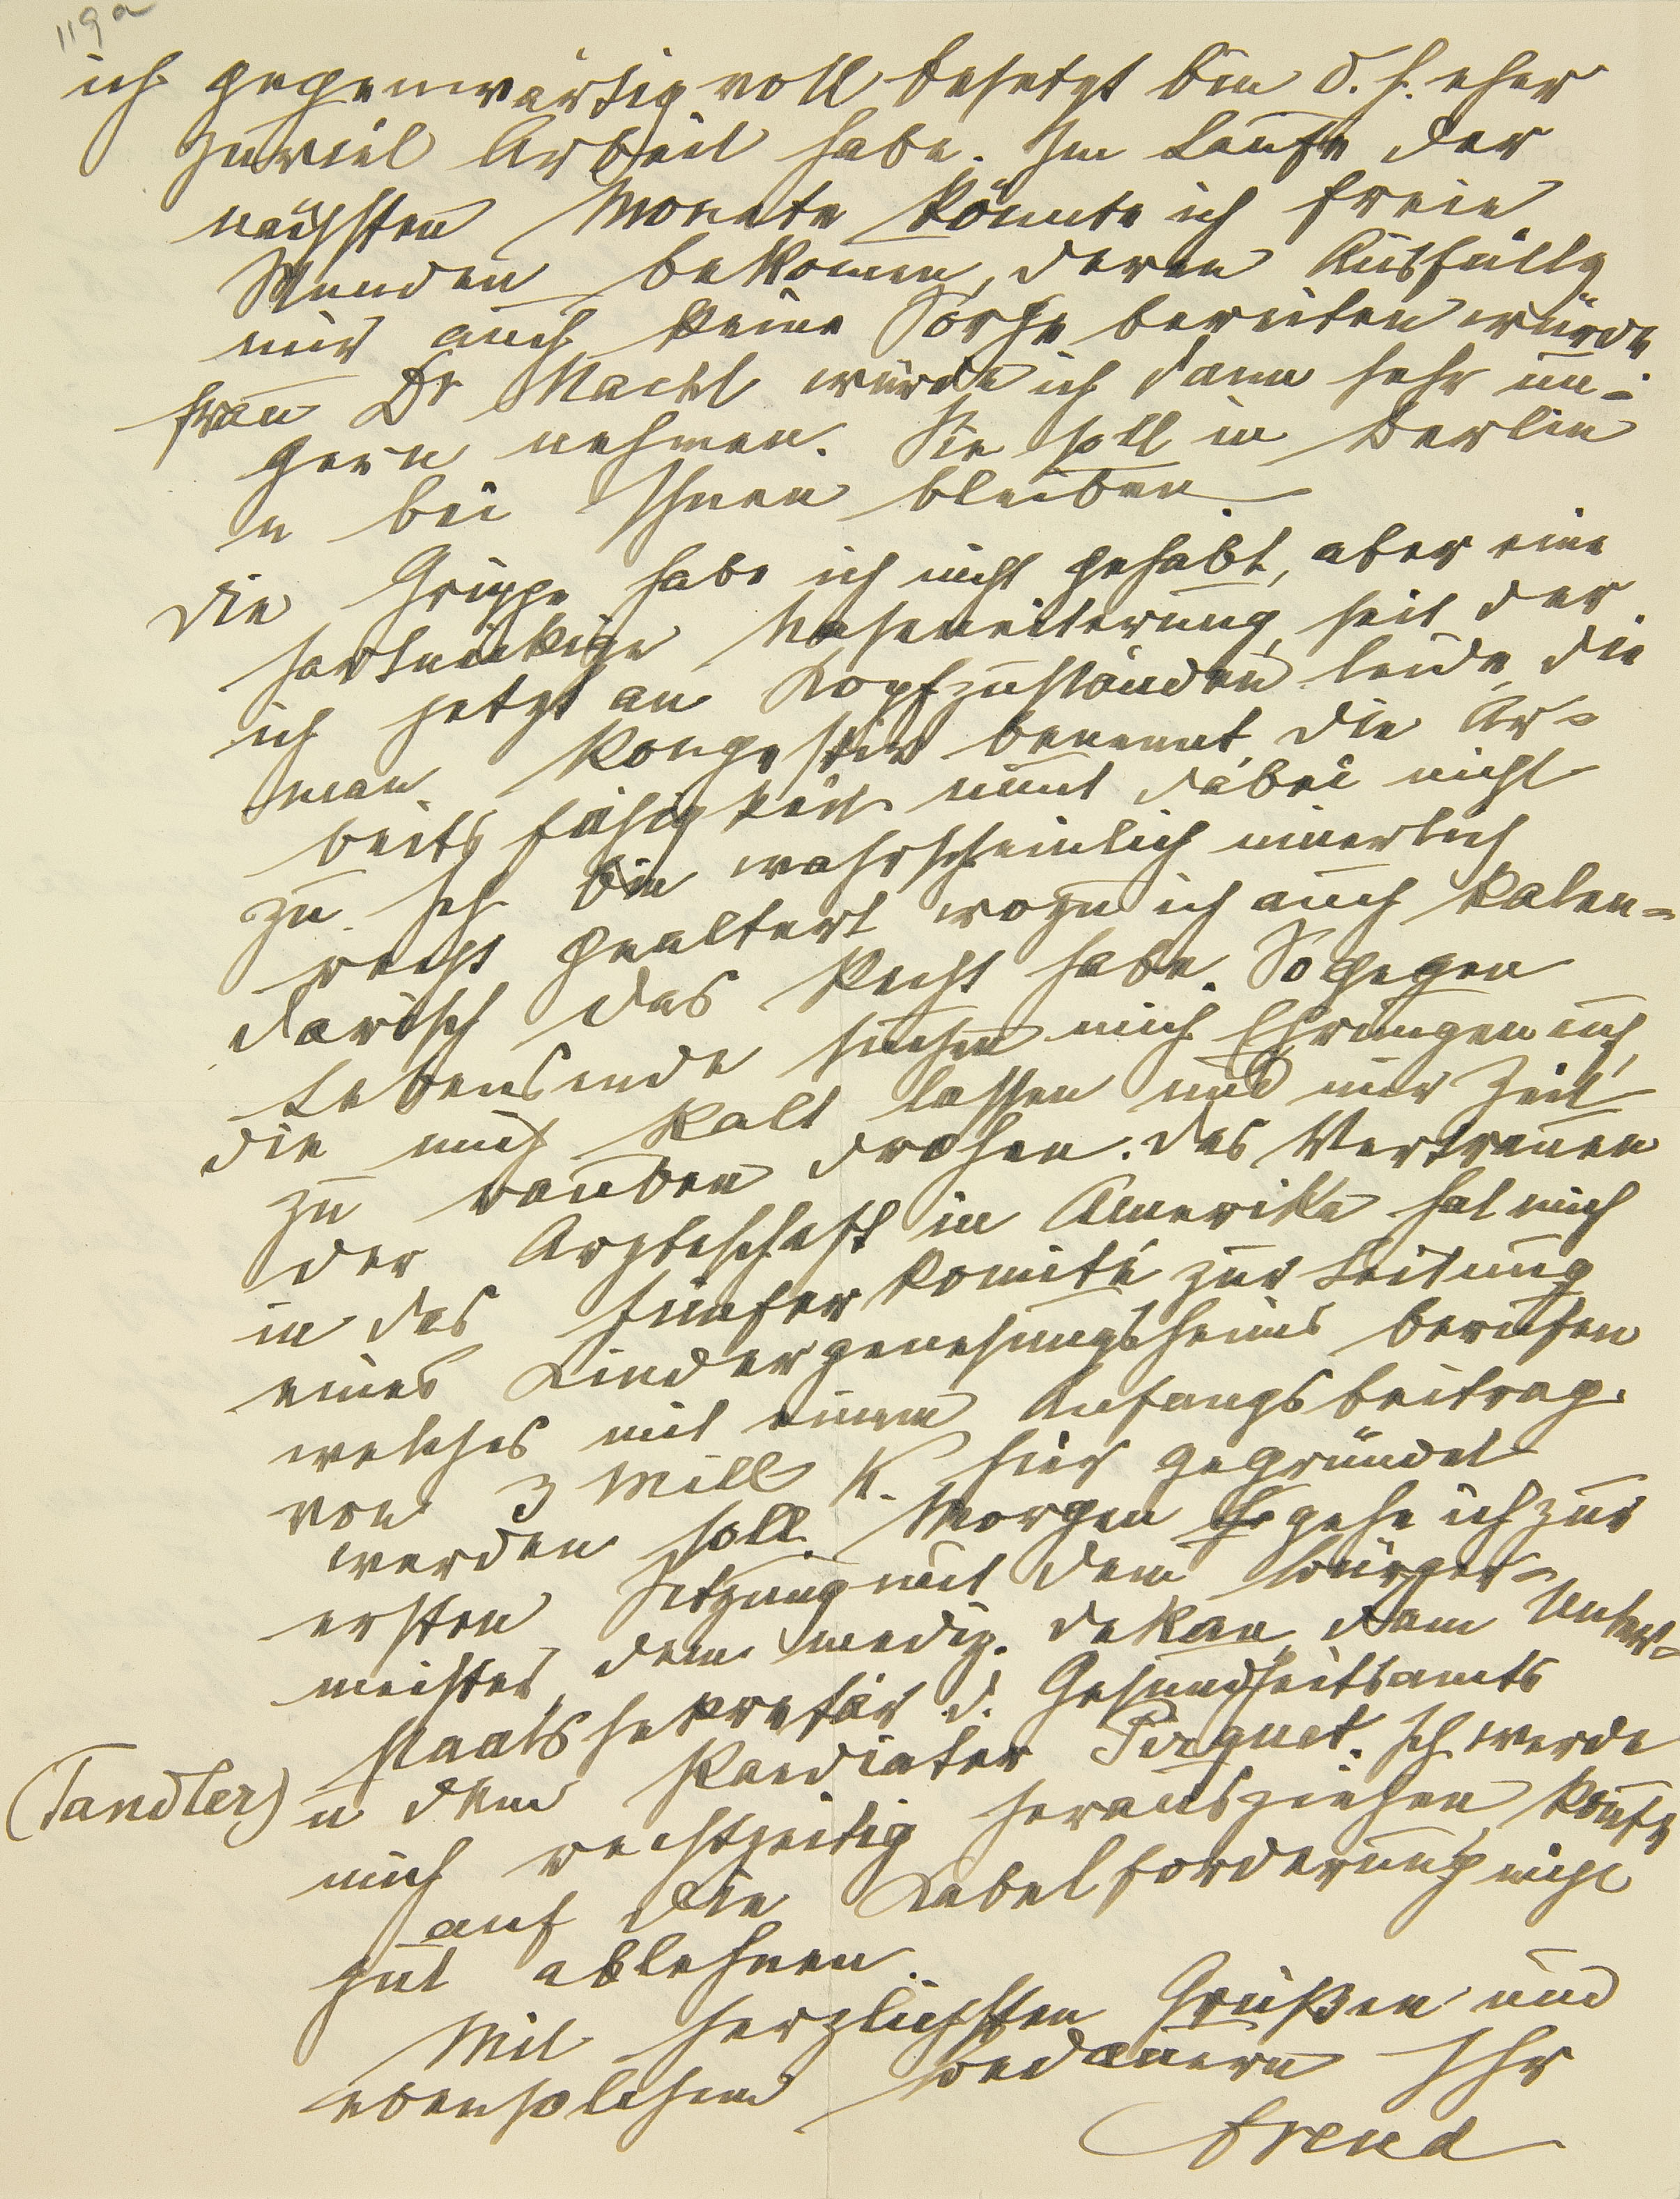 119a
ich gegenwärtig voll besetzt bin d. h. eher
zuviel Arbeit habe. Im Laufe der
nächsten Monate könnte ich freie
Stunden bekomen, deren Ausfüllg
mir auch keine Sorge bereiten würde
Frau Dr Nacht würde ich dann sehr un-
gern nehmen. Sie soll in Berlin
u bei Ihnen bleiben
Die Grippe habe ich nicht gehabt, aber eine
hartnäckige Naseneiterung, seit der
ich jetzt an Kopfzuständen leide, die
man Kongestiv benennt. Die Ar-
beitsfähigkeit nimt dabei nicht
zu. Ich bin wahrscheinlich innerlich
recht gealtert, wozu ich auch kalen-
darisch das Recht habe. So gegen
Lebensende suchen mich Ehrungen auf,
die mich kalt lassen und mir Zeit
zu rauben drohen. Das Vertrauen
der Ärzteschaft in Amerika hat mich
in das fünfer Komité zur Leitung
eines Kindergenesungsheims berufen
welches mit einem Anfangsbeitrag
von 3 Mill K. hier gegründet
werden soll. Morgen gehe ich zur
ersten Sitzung mit dem Bürger-
meister, dem mediz. Dekan, dem Unter-
staatssekretär d. Gesundheitsamts
(Tandler) u dem Paediater Pirquet. Ich werde
mich rechtzeitig herausziehen, konnte
auf die Kabelforderung nicht
gut ablehnen.
Mit herzlichsten Grüßen und
ebensolchem Bedauern Ihr
Freud